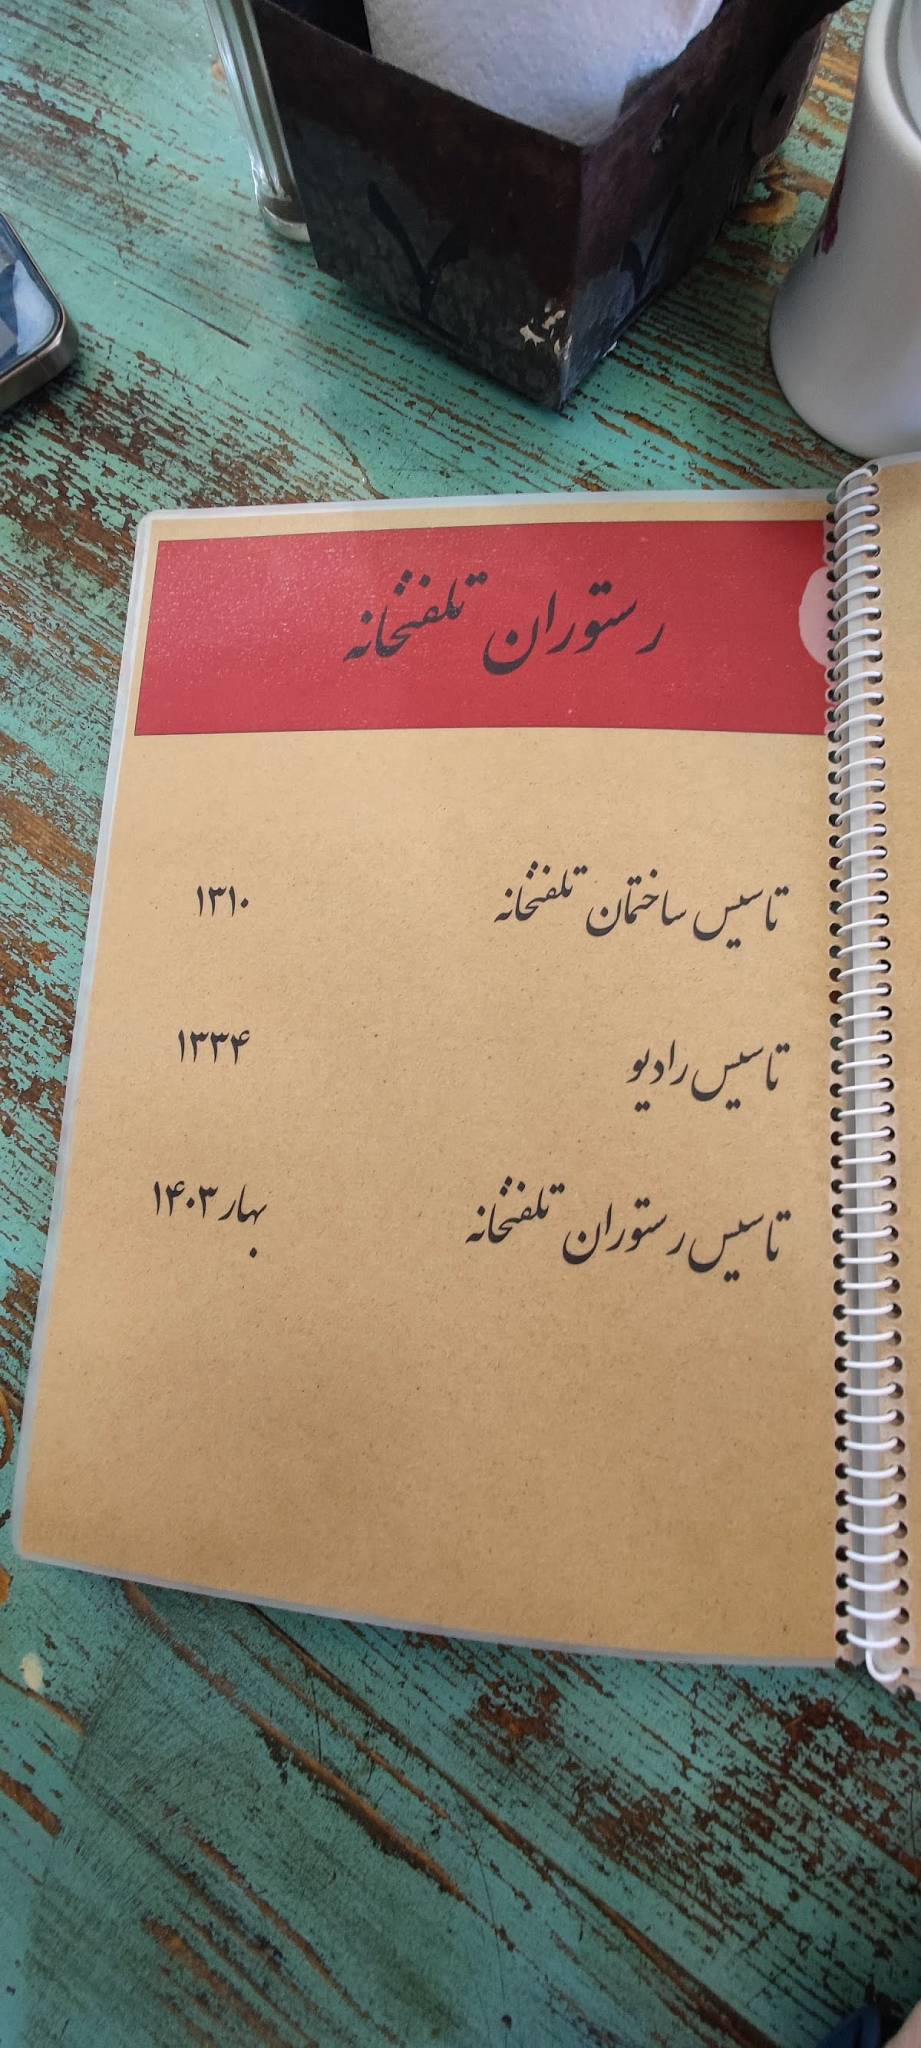 رستوران تلفنخانه
تاسیس ساختمان تلفنخانه ۱۳۱۰
تاسیس رادیو ۱۳۳۴
تاسیس رستوران تلفنخانه بهار ۱۴۰۳